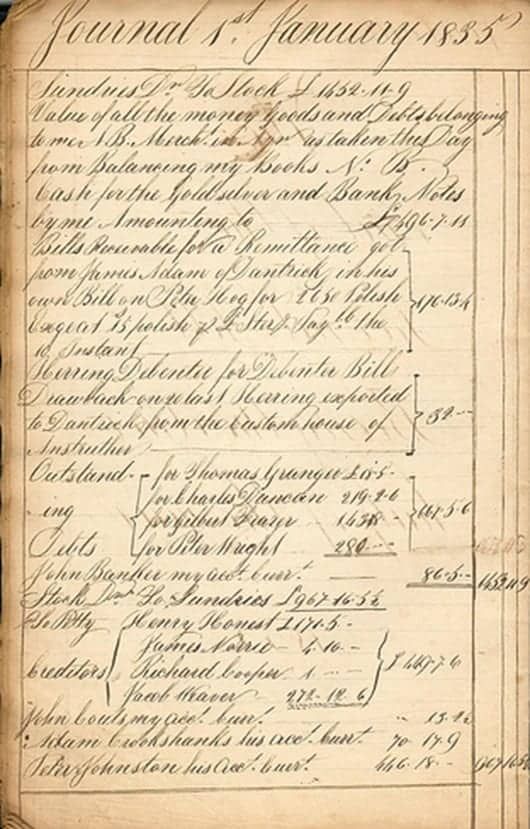 Journal 1st January 1835
Sundries Dr To Stock £ 1452-11-9
Value of all the money Goods and Debts belonging
to me N.B. Mercht in Ayr as taken this Day
from Balancing my Books No B.
Cash for the Gold silver and Bank Notes
by me Amounting to £496-7-11
Bills Receivable for a Remittance got
from James Adam of Dantzick in his
own Bill on Peter Hog for 2650 Polish
at 15 polish 170-13-4
10 Instant
Herring Debenter for Debenter Bill
Drawback on last Herring exported
to Dantzick from the Custom house of 32--
Anstruther
Outstand- for Thomas Granger £18-5-
for Charles Duncan 219-2-6
ing for Gilbert Frazer 667-5-6
Debts for Peter Wright 280--
John Banker my acct. currt. 86-5-- 1452-11-9
Stock Dr To Sundries £967-16-5½
To Petty Henry Honest £171-5-
James Norrie 4-10-
Creditors Richard Cooper 1-- £449-7-6
Jacob Weaver 272-12-6
John Couts my acct. currt.
Adam Crookshanks his acct. currt. 70-17-9
Peter Johnston his acct. currt. 446-18--